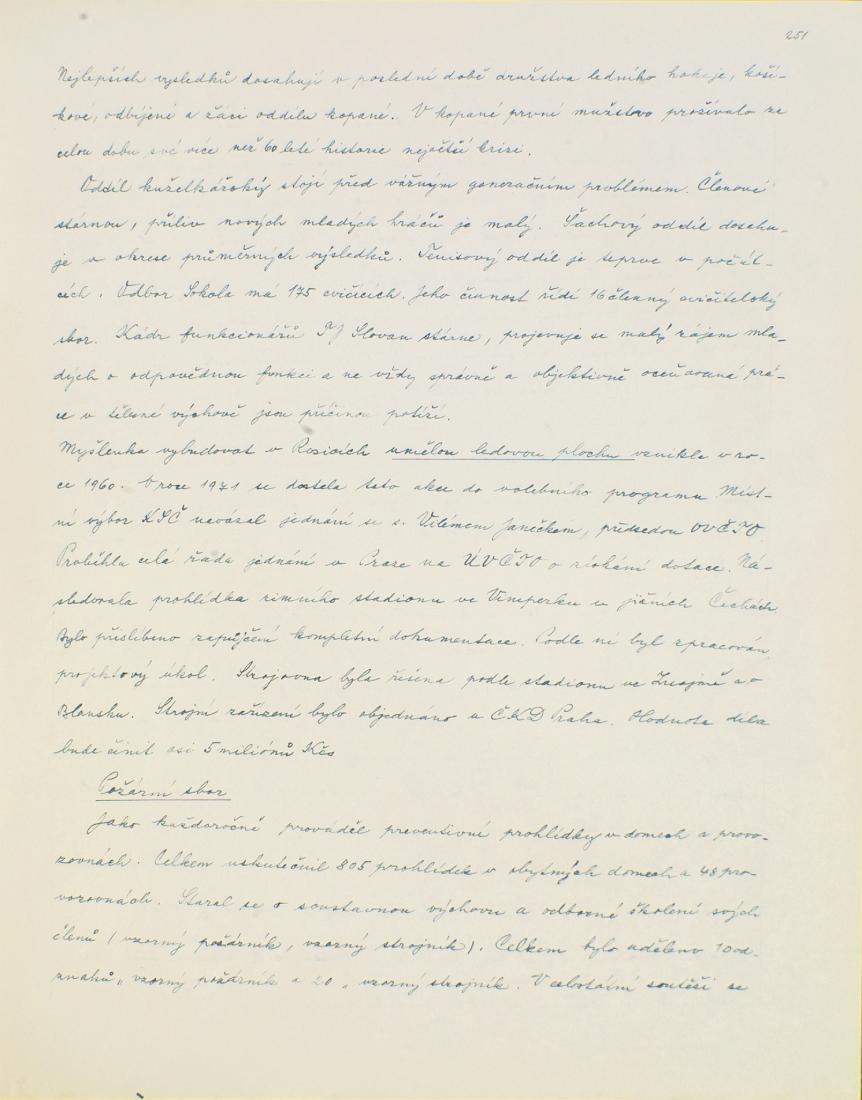 251
Nejlepších vysledků dosahují v poslední době družstva ledního hokeje, koší-
kové, odbíjené a žáci oddílu kopané. V kopané první mužstvo prožívalo ze
celou dobu své více než 60 leté historie největší krizi.
Oddíl kuželkářský stojí před vážným generačním problémem. Členové
stárnou, příliv nových mladých hráčů je malý. Šachový oddíl dosahu-
je v okrese průměrných výsledků. Tenisový oddíl je teprve v počát-
cích. Odbor Sokola má 175 cvičících. Jeho činnost řídí 16členný cvičitelský
sbor. Kádr funkcionářů TJ Slovan stárne, projevuje se malý zájem mla-
dých o odpovědnou funkci a ne vždy správně a objektivně oceňovaná prá-
ce v tělesné výchově jsou příčinou potíží.
Myšlenka vybudovat v Rosicích umělou ledovou plochu vznikla v ro-
ce 1960. V roce 1971 se dostala tato akce do volebního programu. Míst-
ní výbor KSČ navázal jednání se s. Vilémem Janečkem, předsedou OVČTO.
Proběhla celá řada jednání v Praze na ÚVČTO o získání dotace. Ná-
sledovala prohlídka zimního stadionu ve Vimperku v jižních Čechách.
Bylo přislíbeno zapůjčení kompletní dokumentace. Podle ní byl zpracován
projektový úkol. Strojovna byla řešena podle stadionu ve Znojmě a v
Blansku. Strojní zařízení bylo objednáno u ČKD Praha. Hodnota díla
bude činit asi 5 miliónů Kčs
Požární sbor
Jako každoročně prováděl preventivní prohlídky v domech a provo-
zovnách. Celkem uskutečnil 805 prohlídek v obytných domech a 48 pro-
vozovnách. Staral se o soustavnou výchovu a odborné školení svých
členů (vzorný požárník, vzorný strojník). Celkem bylo uděleno 10 od-
znaků „ vzorný požárník a 20 „ vzorný strojník. V celostátní soutěži se